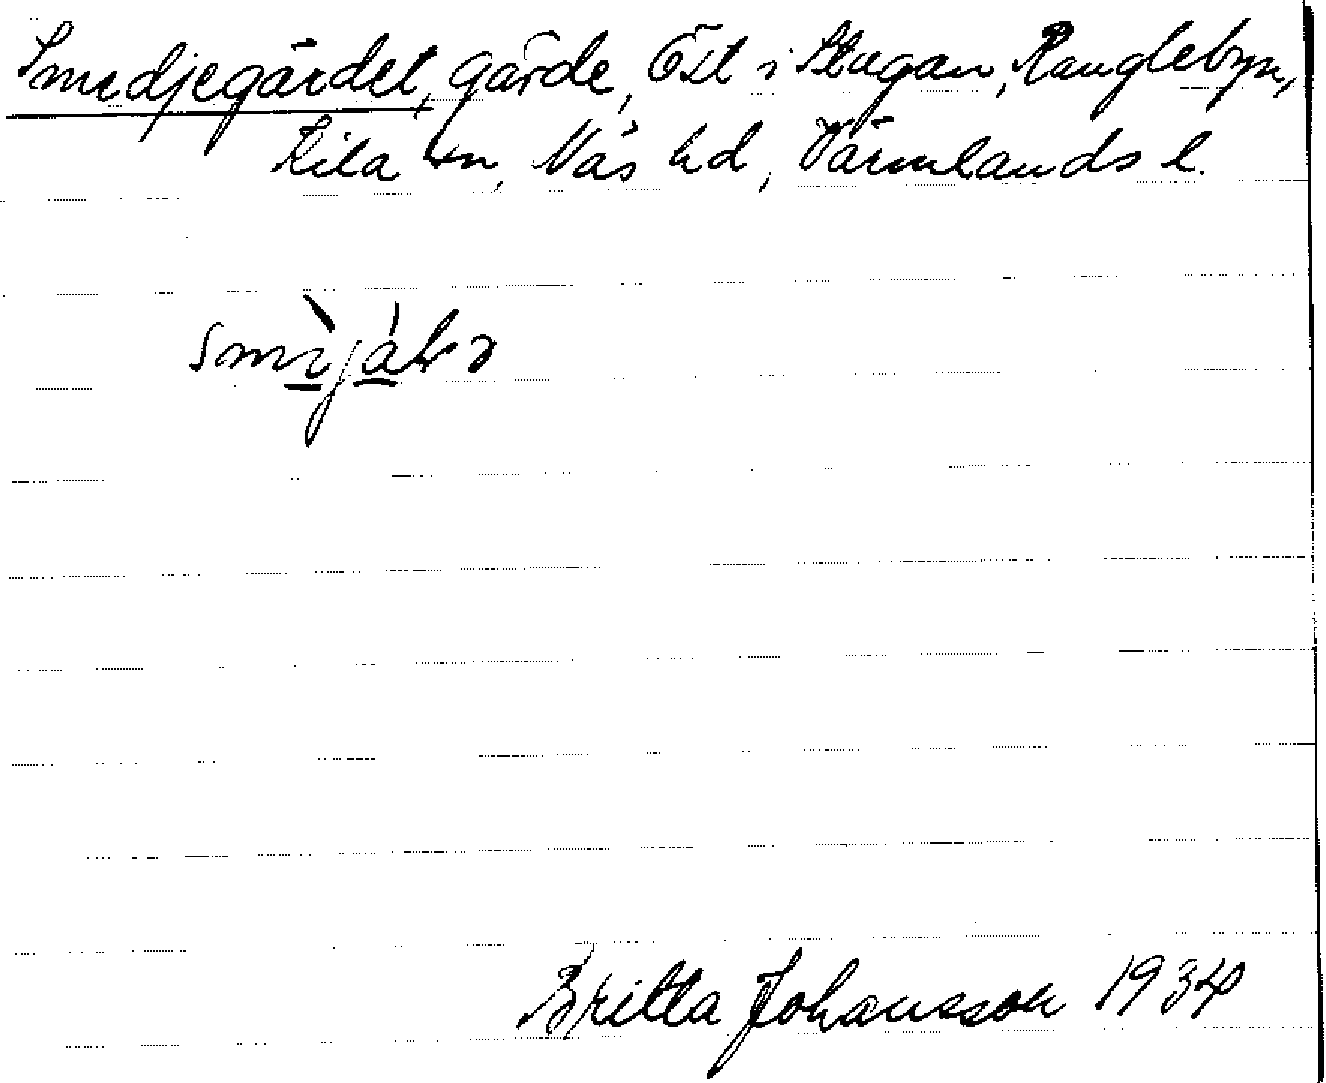 Smedjegärdet, gärde, Öst i Stugan, Ranglebyn,
Kila sn, Näs hd, Värmlands l.
Britta Johansson 1934